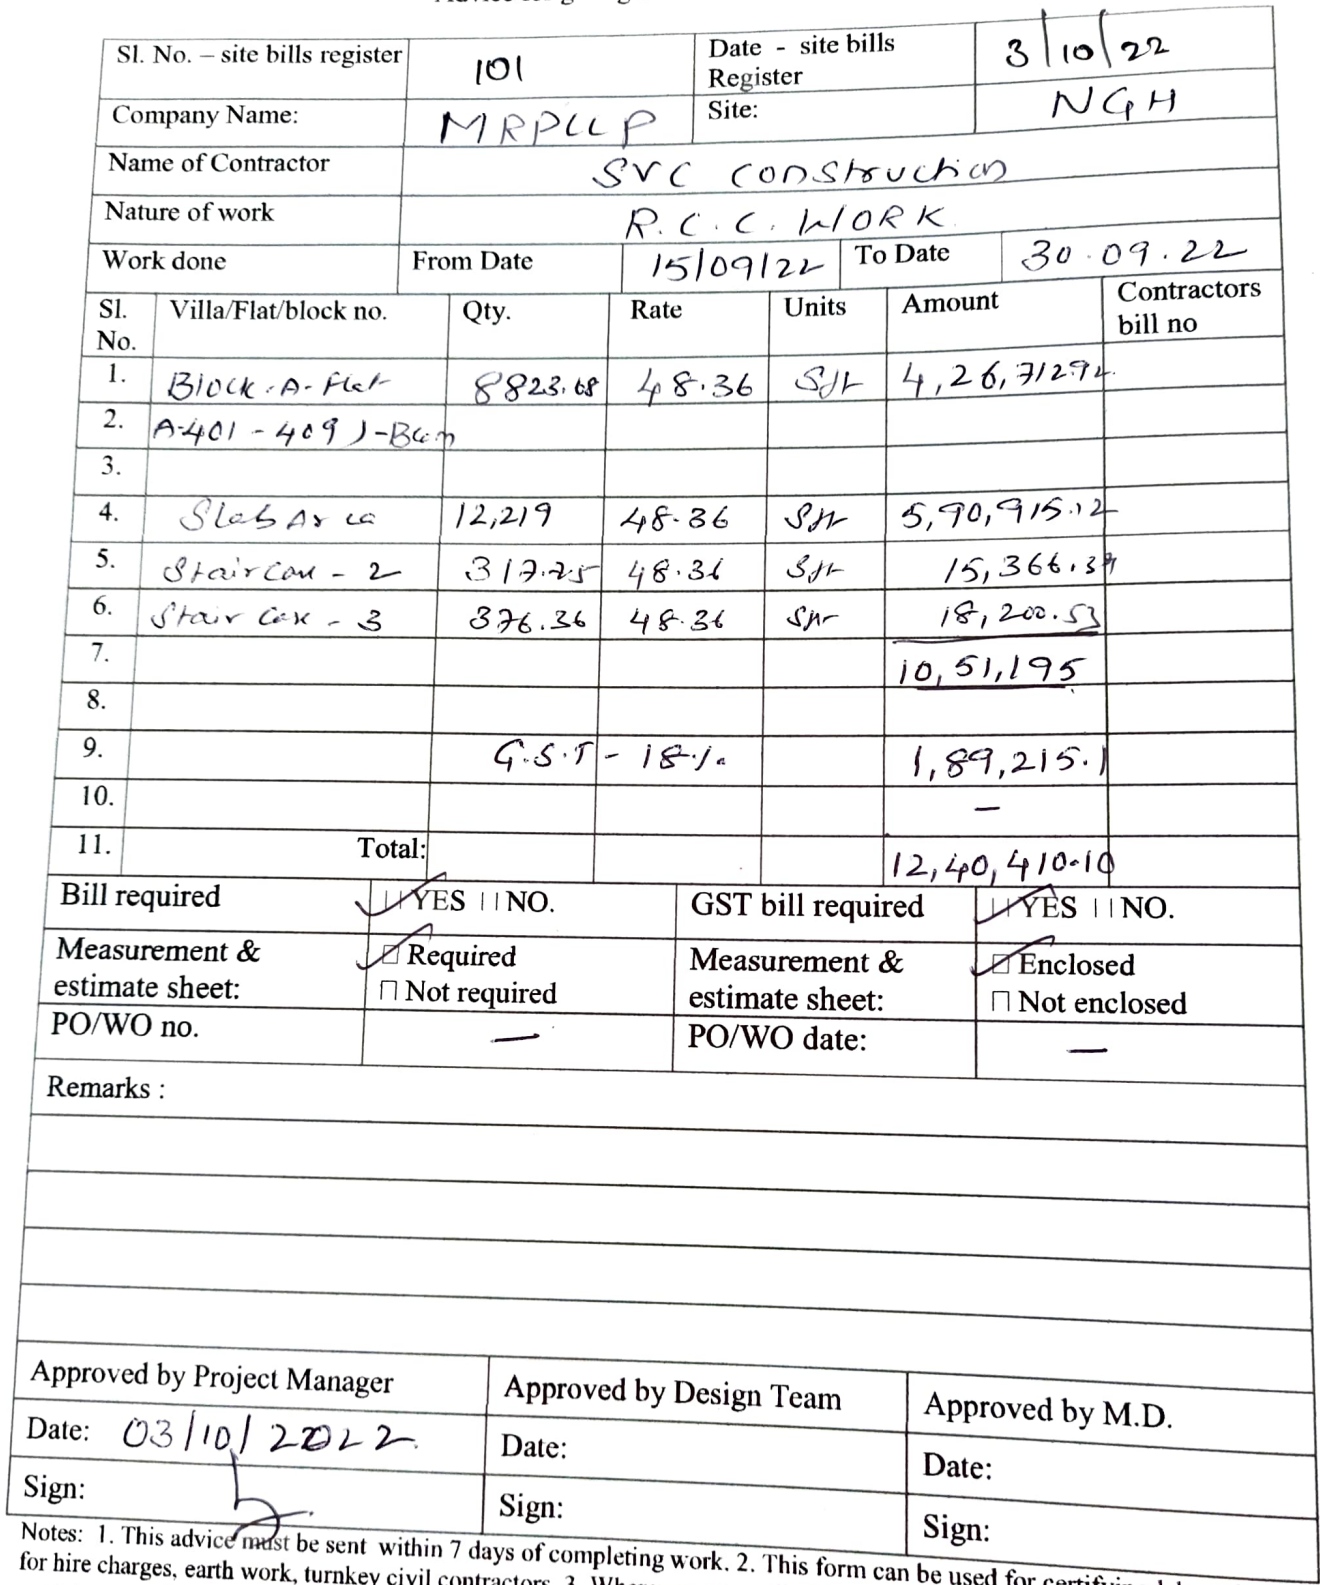 Sl. No. – site bills register 101 Date - site bills Register 3/10/22
Company Name: MRPLLP Site: NGH
Name of Contractor SVC Construction
Nature of work R.C.C. WORK
Work done From Date 15/09/22 To Date 30.09.22
Sl. No. Villa/Flat/block no. Qty. Rate Units Amount Contractors bill no
1. Block-A-Flat 8823.68 48.36 Sft 4,26,712.92
2. A-401 - 409)
3.
4. Slab Area 12,219 48.36 Sft 5,90,915.12
5. Stair Case - 2 317.25 48.36 Sft 15,366.
6. Stair Case - 3 376.36 48.36 Sft 18,200.53
7. 10,51,195
8.
9. G.S.T - 18% 1,89,215.1
10. –
11. Total: 12,40,410.10
Bill required YES NO. GST bill required YES NO.
Measurement & estimate sheet: Required Measurement & estimate sheet: Enclosed
Not required Not enclosed
PO/WO no. — PO/WO date: —
Remarks :
Approved by Project Manager Approved by Design Team Approved by M.D.
Date: 03/10/2022 Date: Date:
Sign: Sign: Sign:
Notes: 1. This advice must be sent within 7 days of completing work. 2. This form can be used for
for hire charges, earth work, turnkey civil contractors. 3.